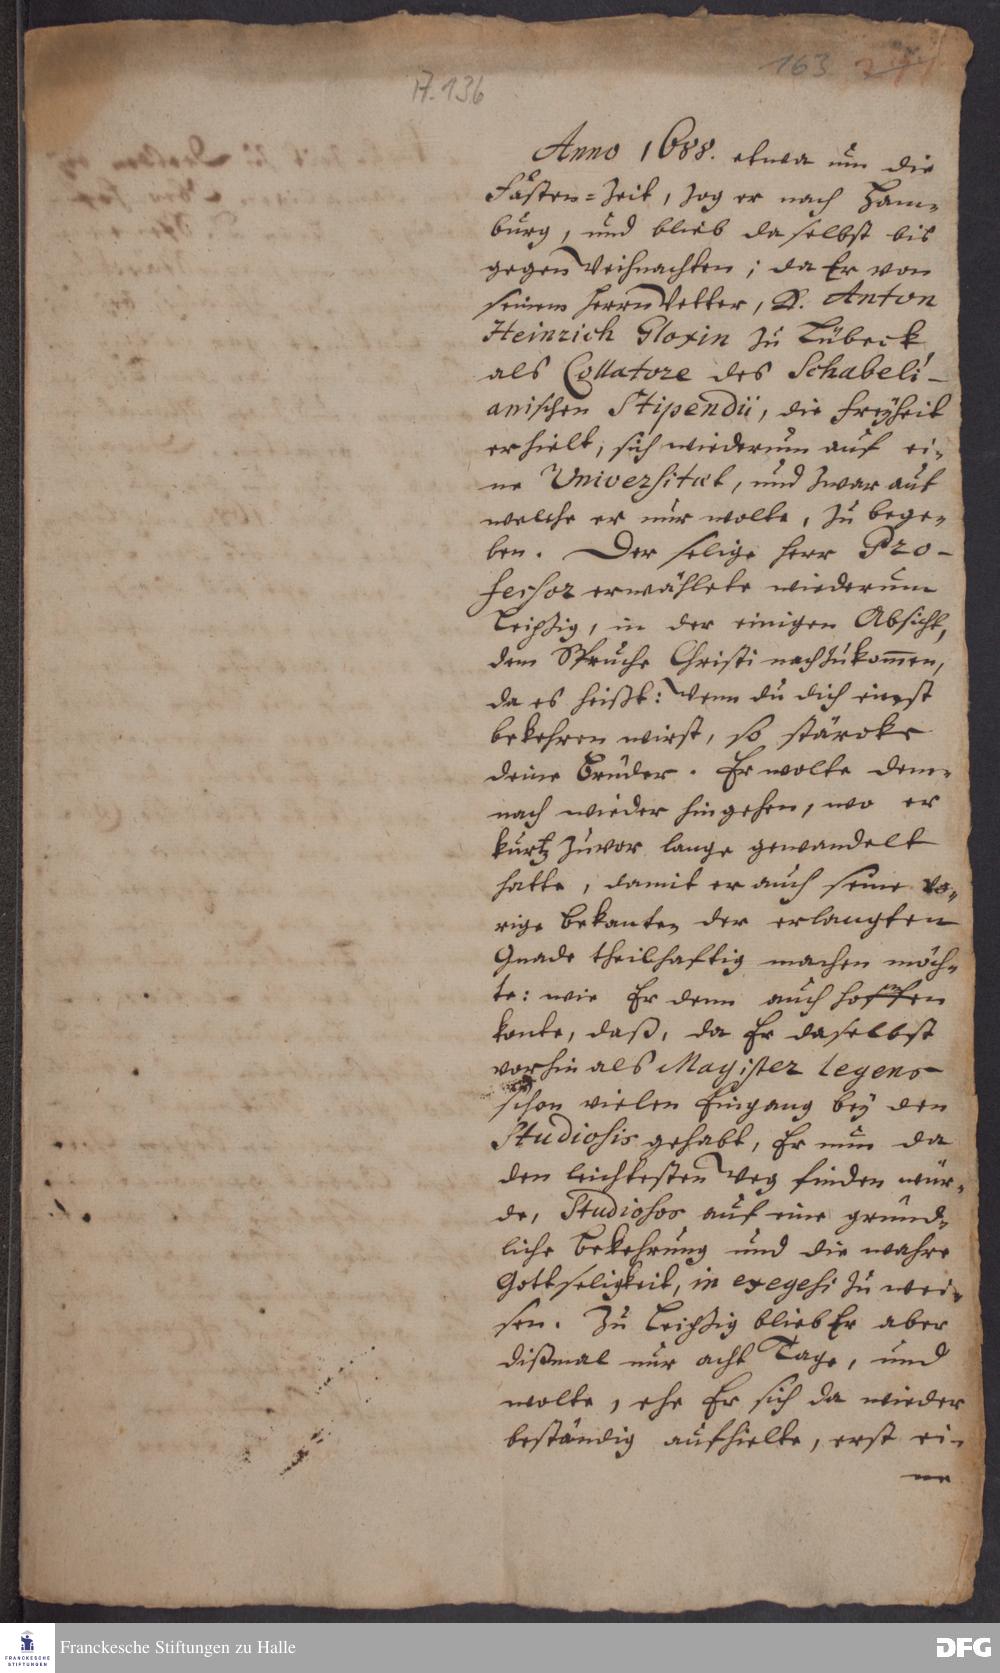 163
A. 136
Anno 1688. etwa um die
Fasten-Zeit, zog er nach Ham-
burg, und blieb daselbst bis
gegen Weihnachten; da Er von
seinem Herrn Vetter, D. Anton
Heinrich Gloxin zu Lübeck,
als Collatore des Schabeli-
anischen Stipendii, die Freyheit
erhielt, sich wiederum auf ei-
ne Universitæt, und zwar auf
welche er nur wolte, zu bege-
ben. Der selige Herr Pro-
fessor erwählete wiederum
Leipzig, in der einigen Absicht,
dem Spruche Christi nachzukom̄en,
da es heißt: Wenn du dich einst
bekehren wirst, so stärcke
deine Brüder. Er wolte dem-
nach wieder hingehen, wo er
kurtz zuvor lange gewandelt
hatte, damit er auch seine vo-
rige Bekanten der erlangten
Gnade theilhaftig machen möch-
te: wie Er denn auch hoffen
konte, daß, da Er daselbst
vorhin als Magister legens
schon vielen Eingang bey den
Studiosis gehabt, Er nun da
den leichtesten Weg finden wür-
de, Studiosos auf eine gründ-
liche Bekehrung und die wahre
Gottseligkeit, in exegesi zu wei-
sen. Zu Leipzig blieb Er aber
dißmal nur acht Tage, und
wolte, ehe Er sich da wieder
beständig aufhielte, erst ei-
ne
FRANCKESCHE
STIFTUNGEN
Franckesche Stiftungen zu Halle
DFG